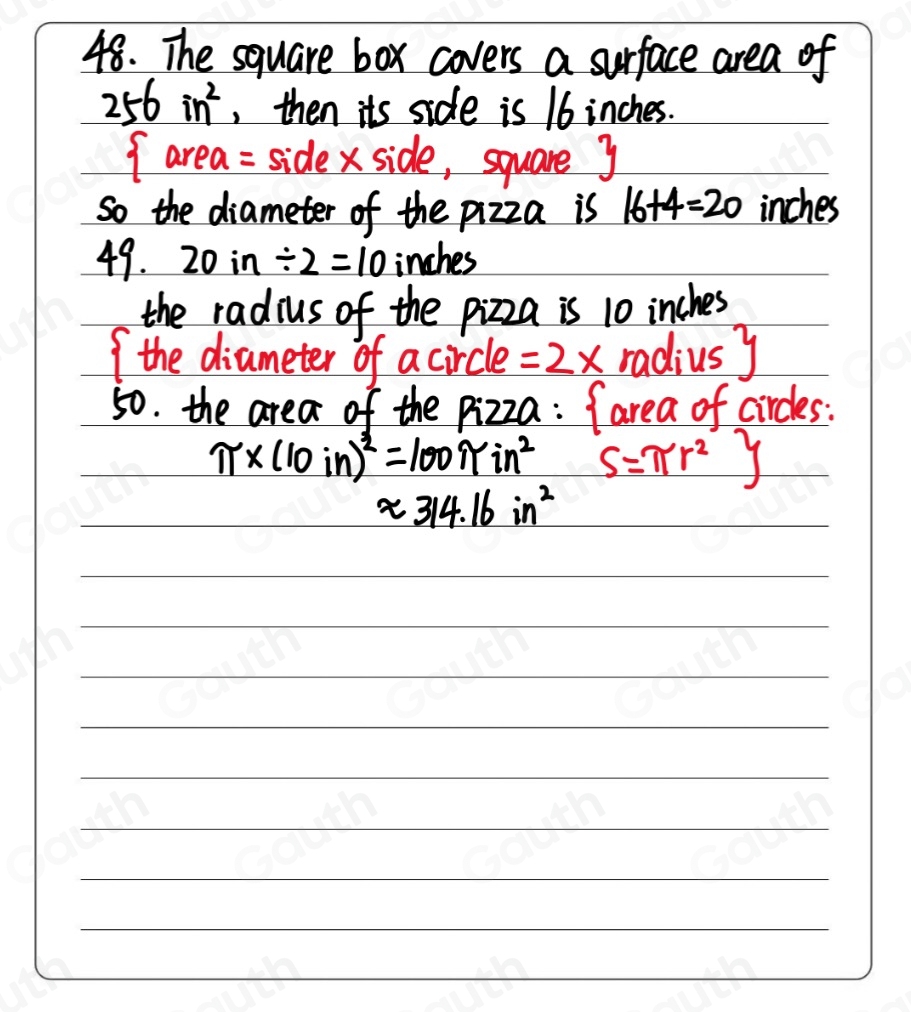 48. The square box covers a surface area of
256 in², then its side is 16 inches.
{ area = side × side, square }
So the diameter of the pizza is 16+4=20 inches
49. 20 in ÷2 =10 inches
the radius of the pizza is 10 inches
{ the diameter of a circle = 2 × radius }
50. the area of the pizza: { area of circles:
π×(10 in)² =100π in² S=πr² }
≈ 314.16 in²
Gauth